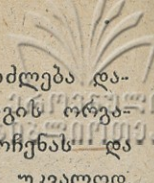 ძლება და-
გის ორგა-
რჩენას და
უკვალოდ